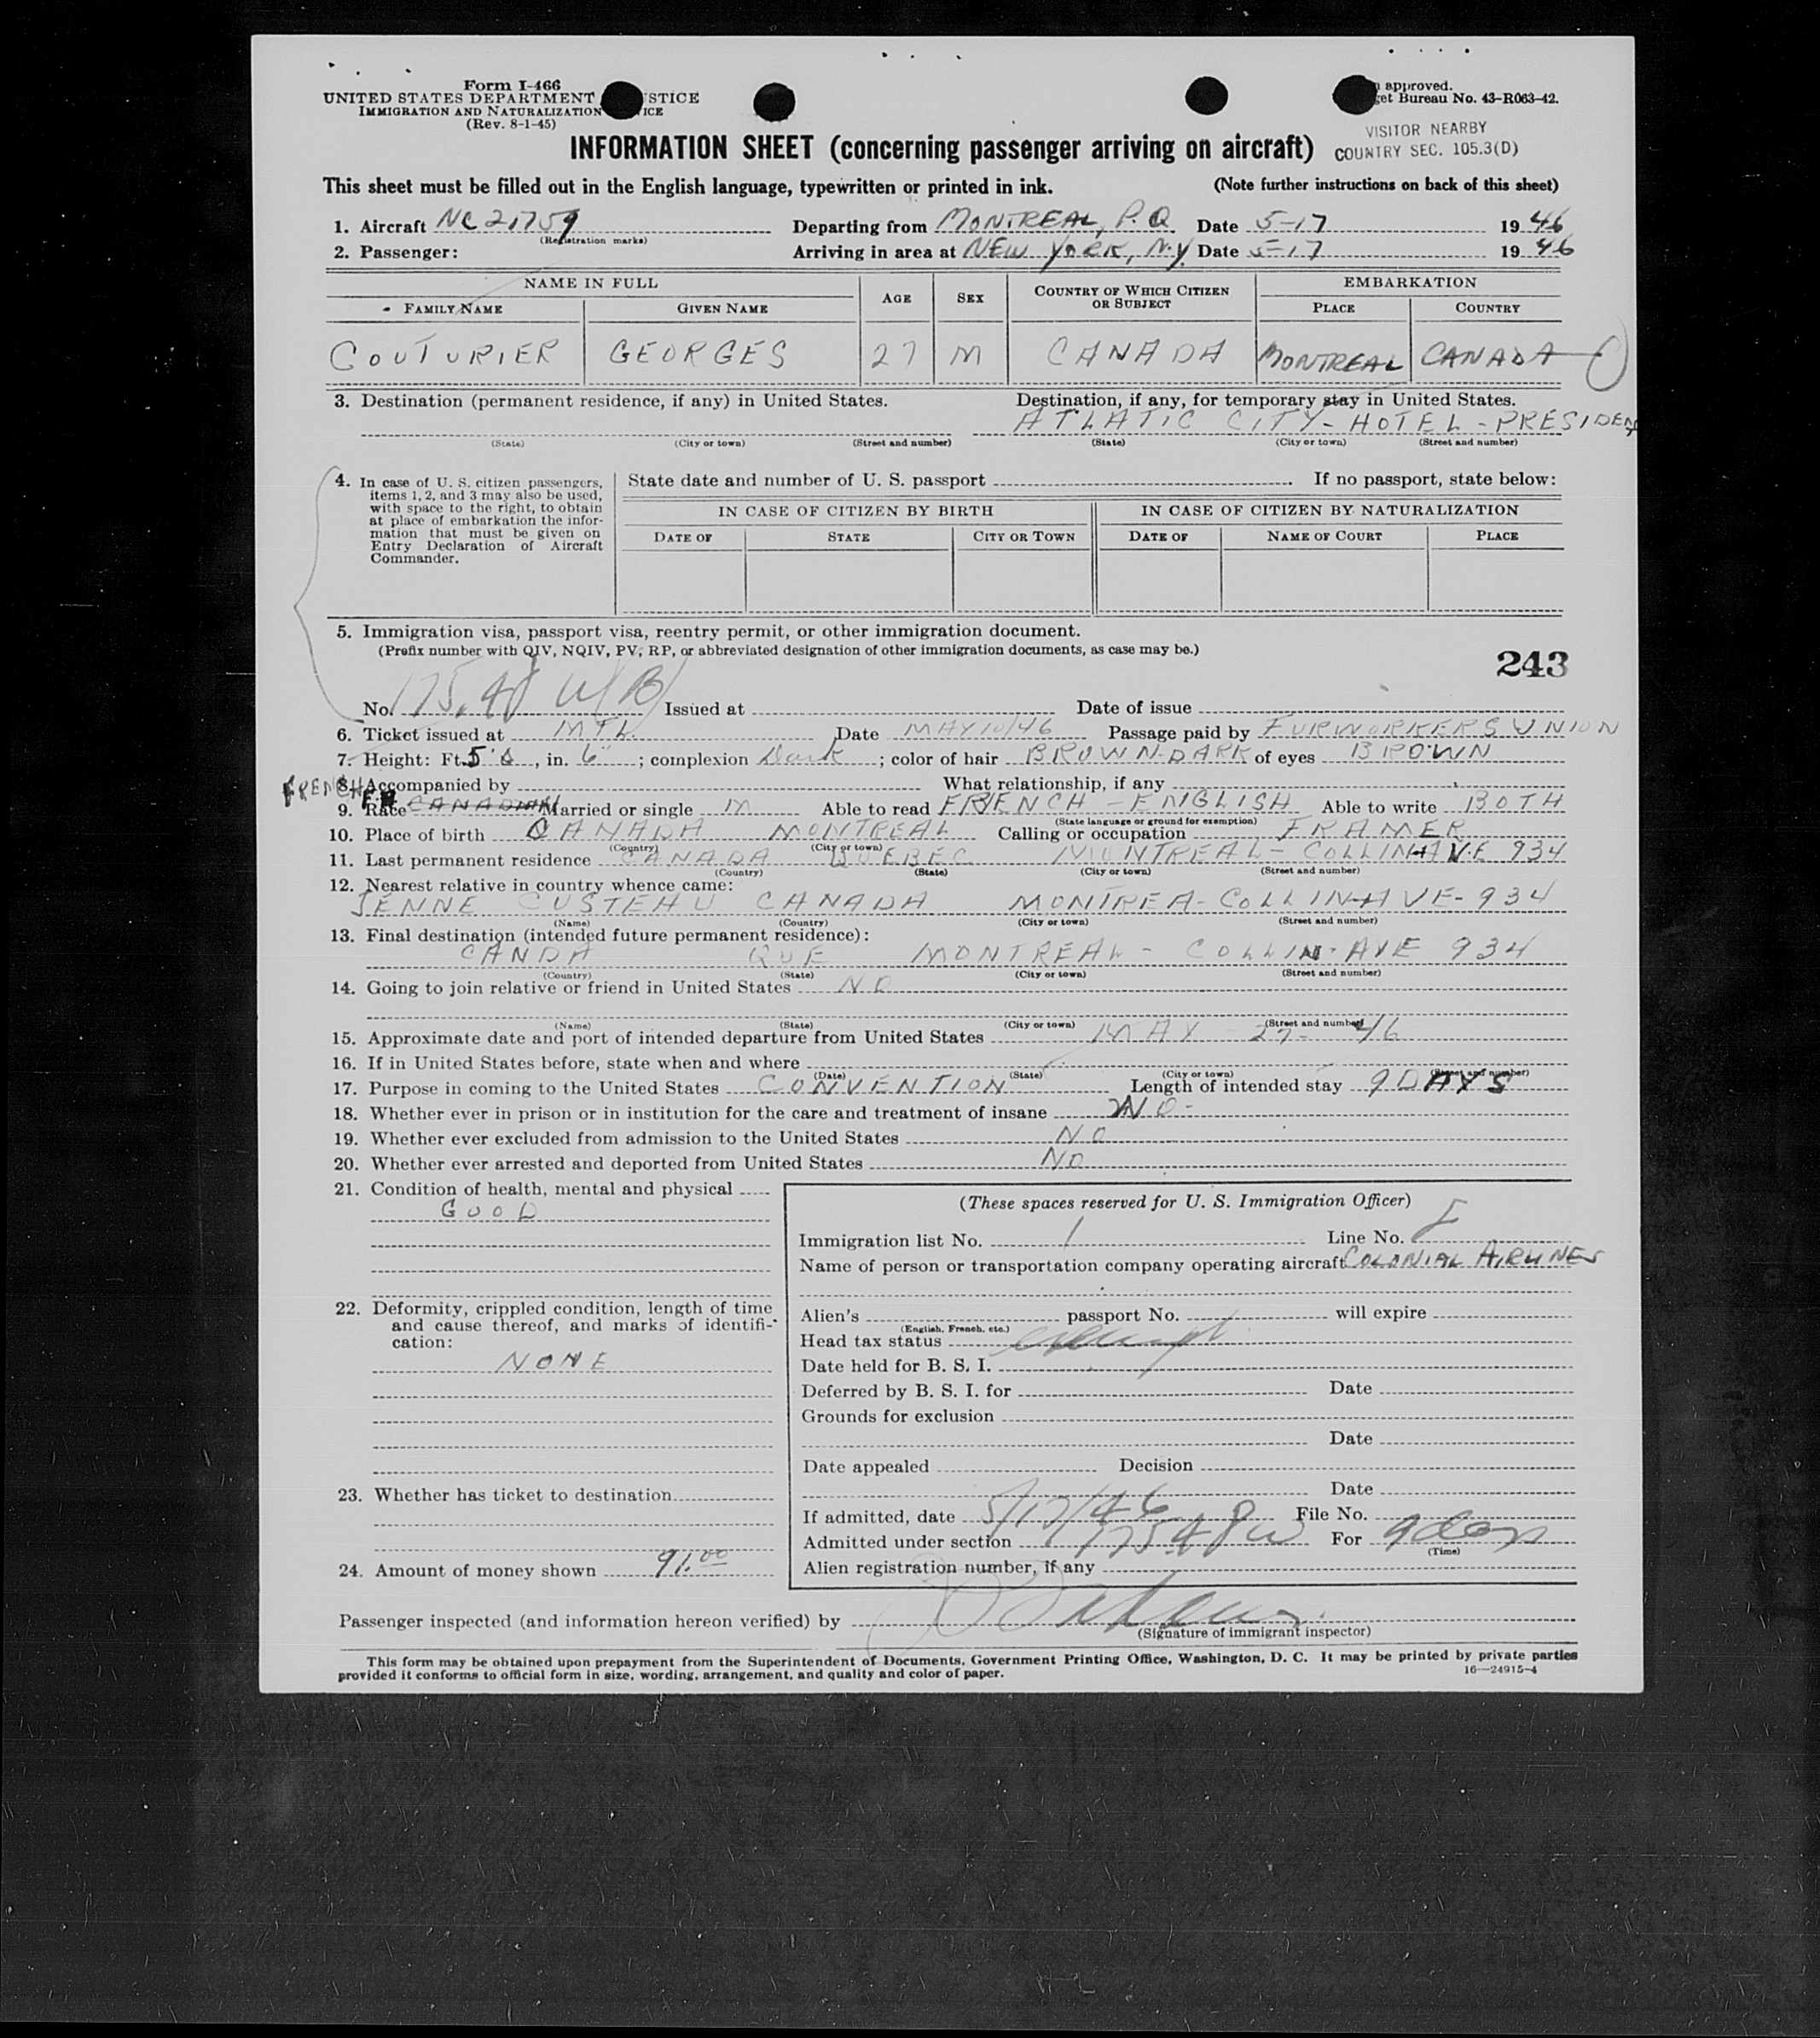 Form I-466
UNITED STATES DEPARTMENT STICE
IMMIGRATION AND NATURALIZATION ICE
(Rev. 8-1-45)
approved.
get Bureau No. 43-R063-42.
VISITOR NEARBY
COUNTRY SEC. 105.3(D)
INFORMATION SHEET (concerning passenger arriving on aircraft)
This sheet must be filled out in the English language, typewritten or printed in ink. (Note further instructions on back of this sheet)
1. Aircraft NC 21759 Departing from MONTREAL, P.Q. Date 5-17 1946
(Registration marks)
2. Passenger: Arriving in area at NEW YORK, N.Y. Date 5-17 1946
NAME IN FULL AGE SEX COUNTRY OF WHICH CITIZEN OR SUBJECT EMBARKATION
FAMILY NAME GIVEN NAME PLACE COUNTRY
COUTURIER GEORGES 27 M CANADA MONTREAL CANADA
3. Destination (permanent residence, if any) in United States. Destination, if any, for temporary stay in United States.
ATLATIC CITY - HOTEL - PRESIDENT
(State) (City or town) (Street and number) (State) (City or town) (Street and number)
4. In case of U. S. citizen passengers, items 1, 2, and 3 may also be used, with space to the right, to obtain at place of embarkation the information that must be given on Entry Declaration of Aircraft Commander.
State date and number of U. S. passport If no passport, state below:
IN CASE OF CITIZEN BY BIRTH IN CASE OF CITIZEN BY NATURALIZATION
DATE OF STATE CITY OR TOWN DATE OF NAME OF COURT PLACE
5. Immigration visa, passport visa, reentry permit, or other immigration document.
(Prefix number with QIV, NQIV, PV, RP, or abbreviated designation of other immigration documents, as case may be.)
243
No. 175.41 Issued at Date of issue
6. Ticket issued at MTL. Date MAY 10/46 Passage paid by FURWORKERS UNION
7. Height: Ft. 5' , in. 6" ; complexion Dark ; color of hair BROWN-DARK of eyes BROWN
8. Accompanied by What relationship, if any
FRENCH
9. Race CANADIAN Married or single M Able to read FRENCH - ENGLISH Able to write BOTH
(State language or ground for exemption)
10. Place of birth CANADA MONTREAL Calling or occupation FRAMER
(Country) (City or town)
11. Last permanent residence CANADA QUEBEC MONTREAL - COLLIN-AVE 934
(Country) (State) (City or town) (Street and number)
12. Nearest relative in country whence came:
JENNE CUSTEAU CANADA MONTREA - COLLIN-AVE - 934
(Name) (Country) (City or town) (Street and number)
13. Final destination (intended future permanent residence):
CANDA QUE MONTREAL - COLLIN-AVE 934
(Country) (State) (City or town) (Street and number)
14. Going to join relative or friend in United States NO
(Name) (State) (City or town) (Street and number)
15. Approximate date and port of intended departure from United States MAY - 27 - 46
16. If in United States before, state when and where
(Date) (State) (City or town) (Street and number)
17. Purpose in coming to the United States CONVENTION Length of intended stay 9 DAYS
18. Whether ever in prison or in institution for the care and treatment of insane NO -
19. Whether ever excluded from admission to the United States NO
20. Whether ever arrested and deported from United States NO
21. Condition of health, mental and physical
GOOD
22. Deformity, crippled condition, length of time and cause thereof, and marks of identification:
NONE
23. Whether has ticket to destination
24. Amount of money shown 91.00
(These spaces reserved for U. S. Immigration Officer)
Immigration list No. 1 Line No.
Name of person or transportation company operating aircraft COLONIAL AIRLINES
Alien's passport No. will expire
(English, French, etc.)
Head tax status exempt
Date held for B. S. I.
Deferred by B. S. I. for Date
Grounds for exclusion
Date
Date appealed Decision
Date
If admitted, date 5/17/46 File No.
Admitted under section For 9 days
(Time)
Alien registration number, if any
Passenger inspected (and information hereon verified) by
(Signature of immigrant inspector)
This form may be obtained upon prepayment from the Superintendent of Documents, Government Printing Office, Washington, D. C. It may be printed by private parties
provided it conforms to official form in size, wording, arrangement, and quality and color of paper.
16—24915-4